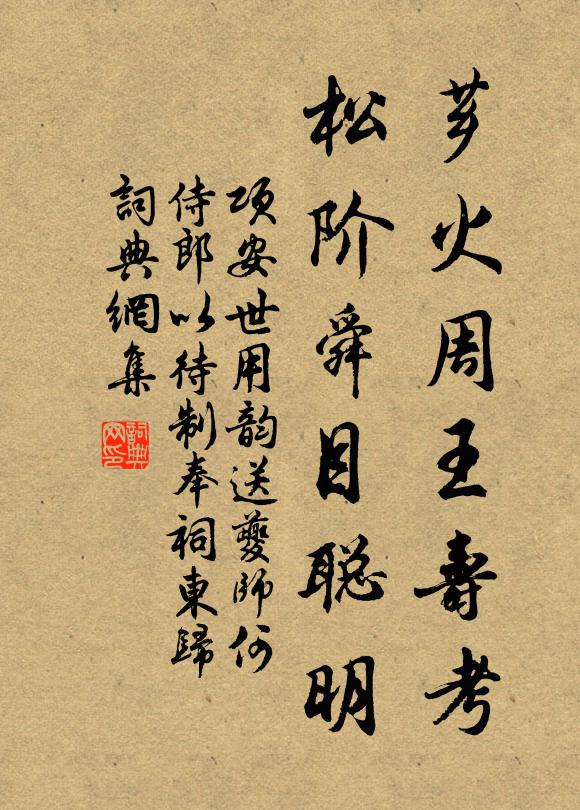 芗火周王壽考
松阶舜目聪明
项安世用韵送夔師何
侍郎以待制奉祠東歸
詞典網集
詞典网印